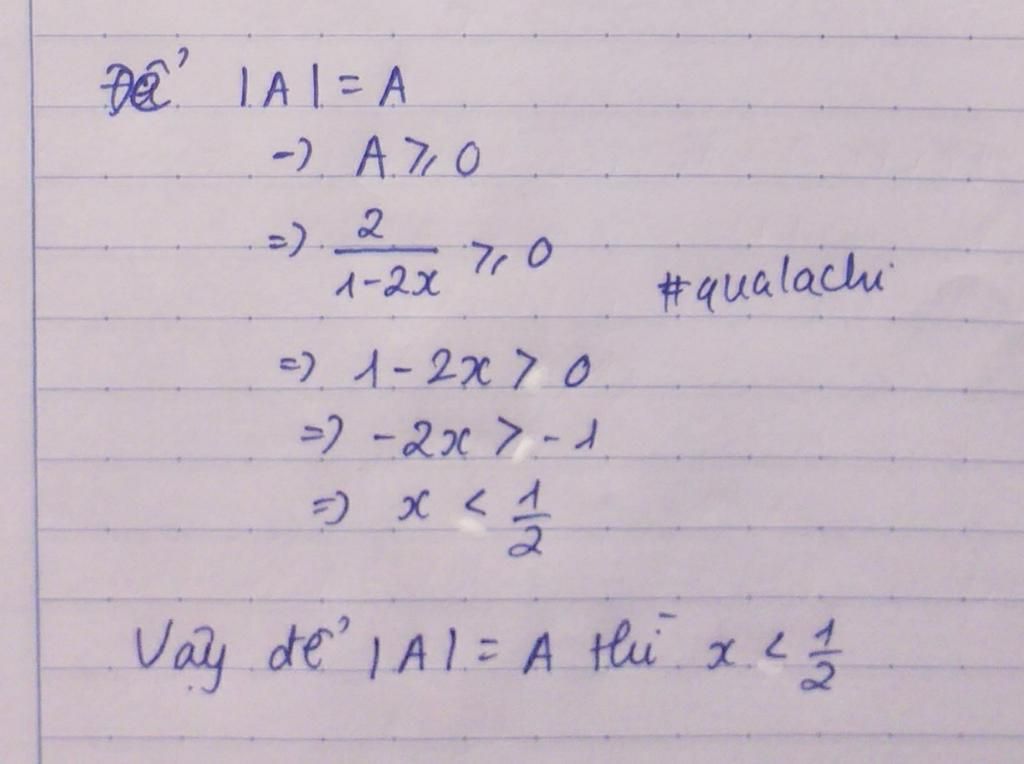 Để |A| = A
-) A ⩾ 0
=) 2/(1-2x) ⩾ 0
#qualachi
=) 1 - 2x > 0
=) -2x > -1
=) x < 1/2
Vậy để |A| = A thì x < 1/2